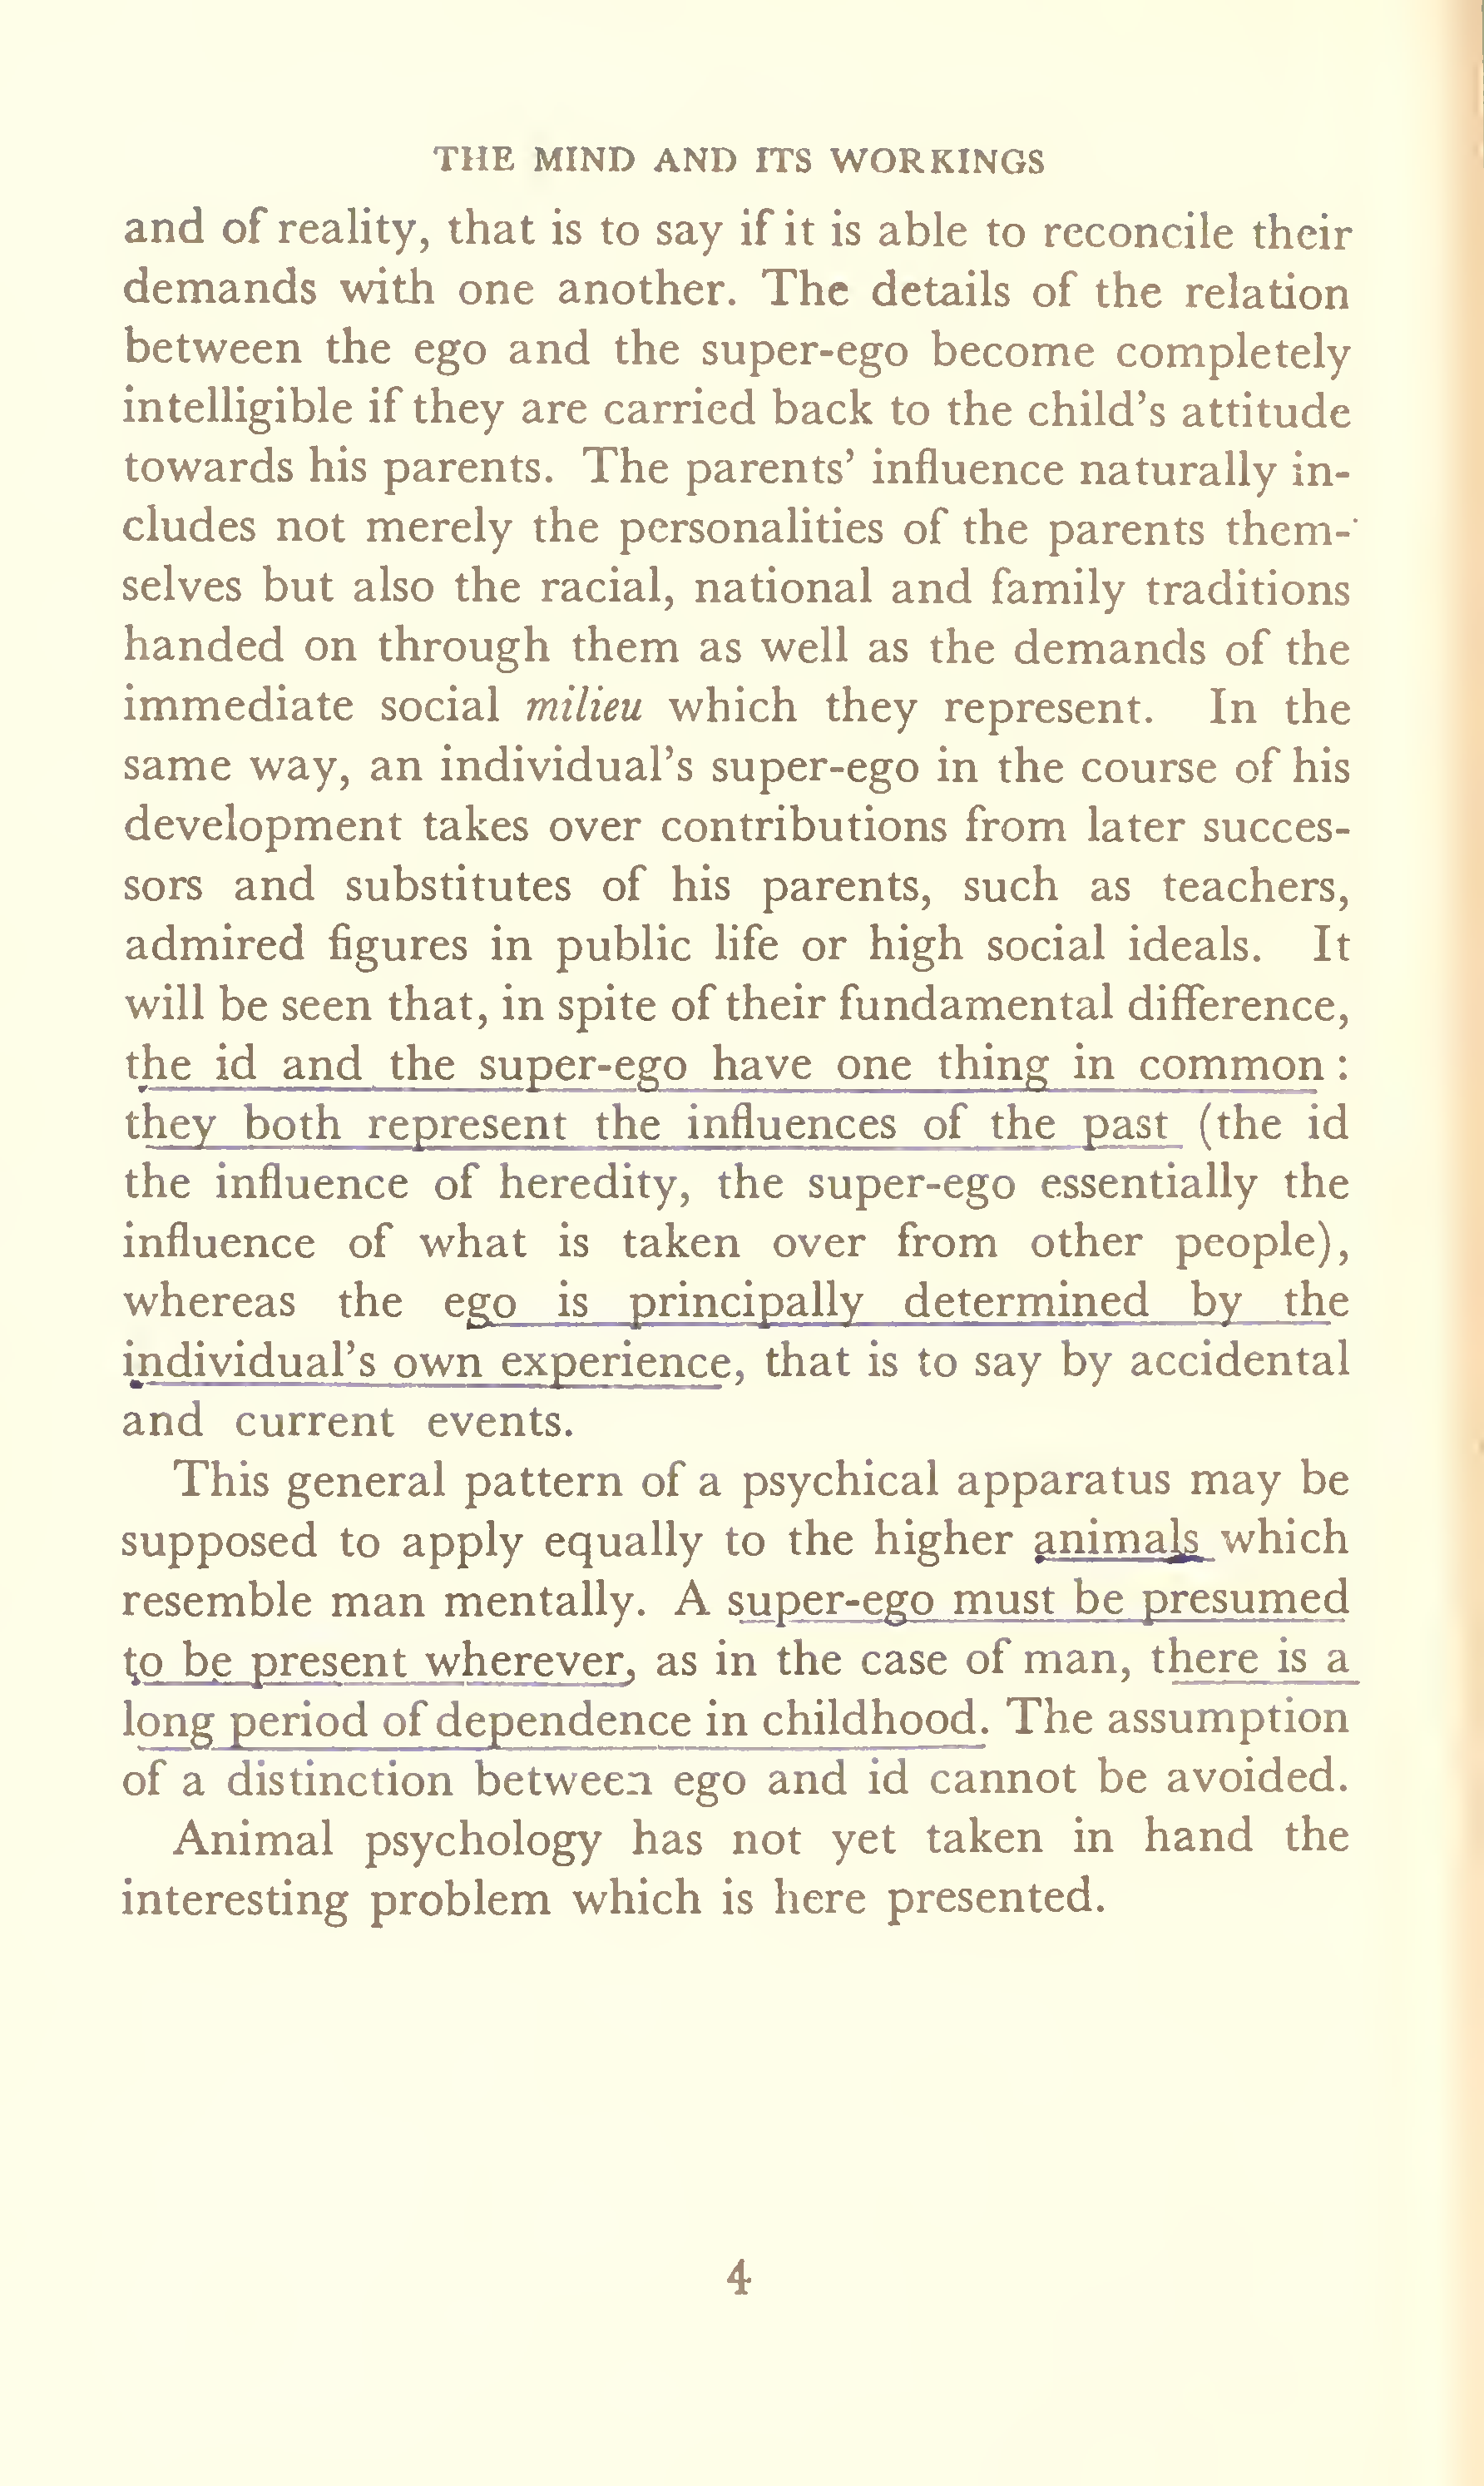 THE MIND AND ITS WORKINGS
and of reality, that is to say if it is able to reconcile their
demands with one another. The details of the relation
between the ego and the super-ego become completely
intelligible if they are carried back to the child's attitude
towards his parents. The parents' influence naturally in-
cludes not merely the personalities of the parents them-
selves but also the racial, national and family traditions
handed on through them as well as the demands of the
immediate social milieu which they represent. In the
same way, an individual's super-ego in the course of his
development takes over contributions from later succes-
sors and substitutes of his parents, such as teachers,
admired figures in public life or high social ideals. It
will be seen that, in spite of their fundamental difference,
the id and the super-ego have one thing in common :
they both represent the influences of the past (the id
the influence of heredity, the super-ego essentially the
influence of what is taken over from other people),
whereas the ego is principally determined by the
individual's own experience, that is to say by accidental
and current events.
This general pattern of a psychical apparatus may be
supposed to apply equally to the higher animals which
resemble man mentally. A super-ego must be presumed
to be present wherever, as in the case of man, there is a
long period of dependence in childhood. The assumption
of a distinction between ego and id cannot be avoided.
Animal psychology has not yet taken in hand the
interesting problem which is here presented.
4